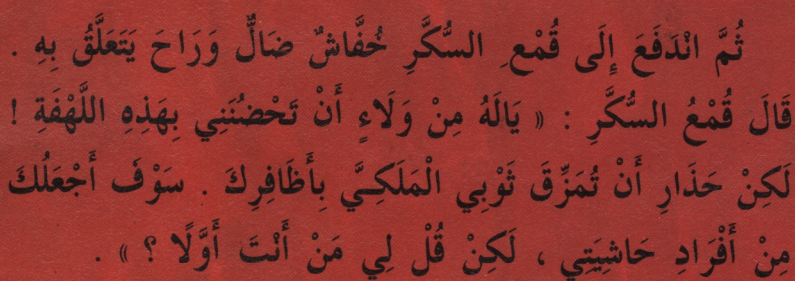 ثُمَّ انْدَفَعَ إِلَى قُمْعِ السُّكَّرِ خُفَّاشٌ ضَالٌّ وَرَاحَ يَتَعَلَّقُ بِهِ .
قَالَ قُمْعُ السُّكَّرِ : « يَالَهُ مِنْ وَلَاءٍ أَنْ تَحْضُنَنِي بِهَذِهِ اللَّهْفَةِ !
لَكِنْ حَذَارِ أَنْ تُمَزِّقَ ثَوْبِي الْمَلَكِيَّ بِأَظَافِرِكَ . سَوْفَ أَجْعَلُكَ
مِنْ أَفْرَادِ حَاشِيَتِي ، لَكِنْ قُلْ لِي مَنْ أَنْتَ أَوَّلًا ؟ » .